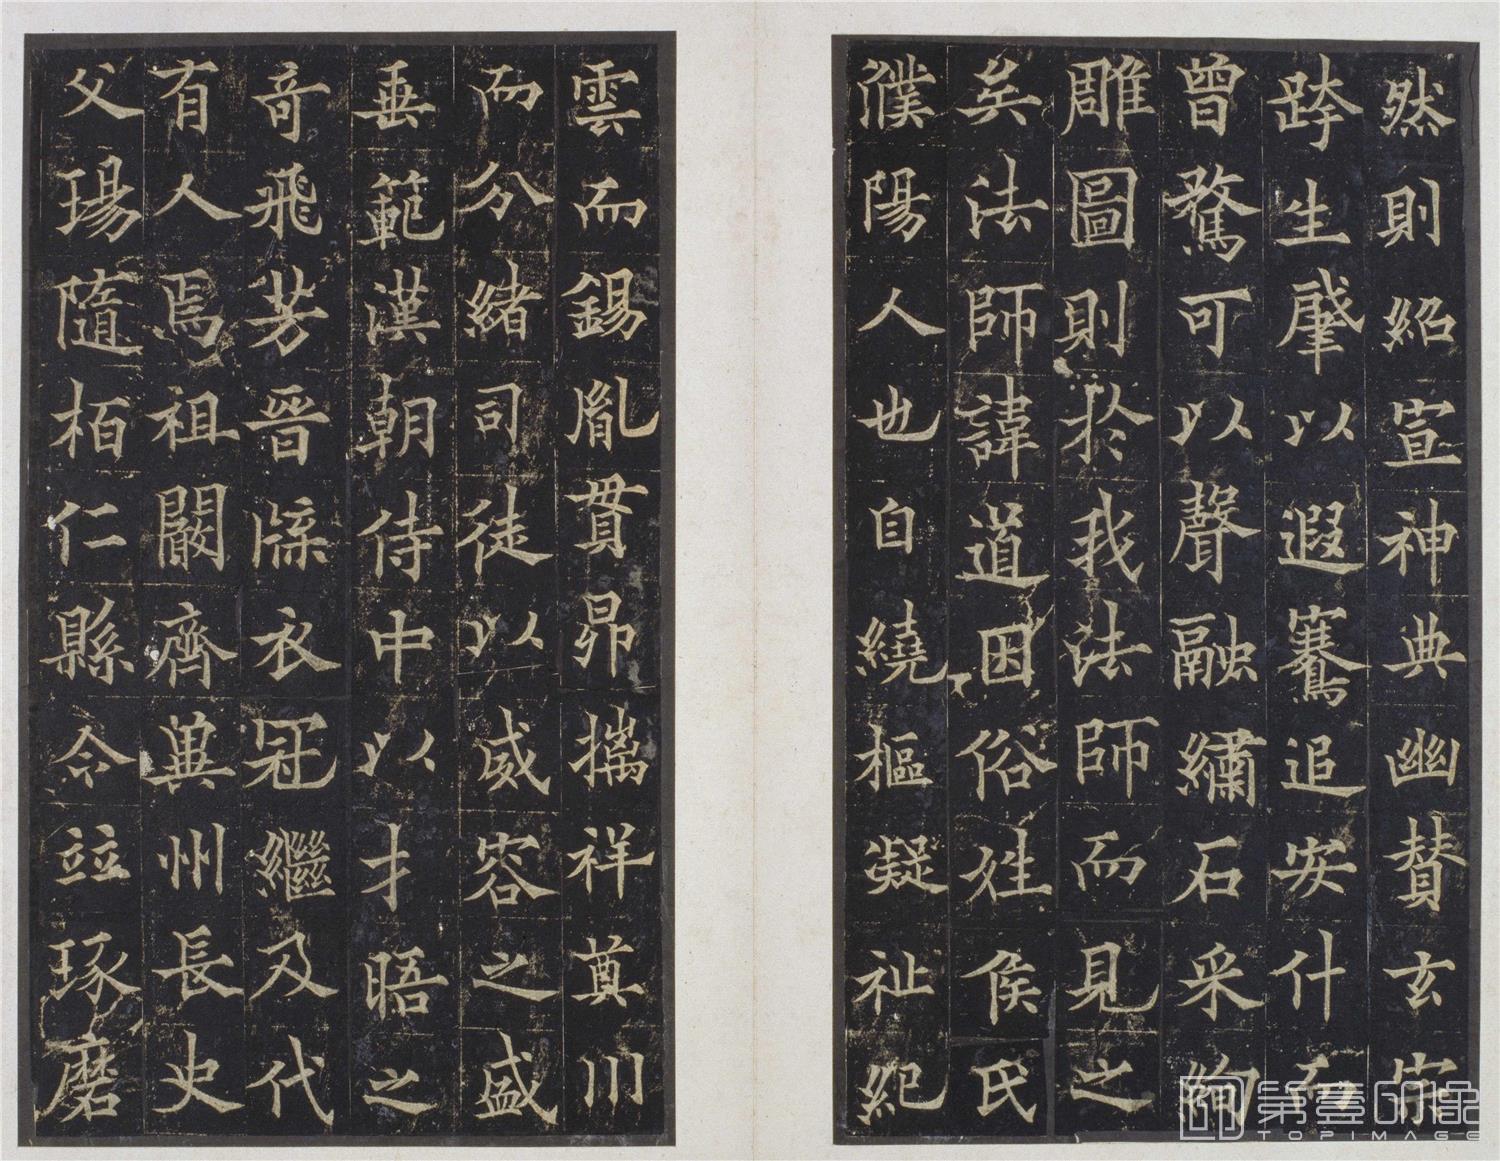 然則紹宣神典幽賛玄宗
跨生肇以遐騫追安什而
曾騖可以聲融繡石采絢
雕圖則於我法師而見之
矣法師諱道因俗姓侯氏
濮陽人也自繞樞凝祉紀
雲而錫胤貫昴摛祥奠川
而分緒司徒以威容之盛
垂範漢朝侍中以才晤之
奇飛芳晉牒衣冠繼及代
有人焉祖闞齊冀州長史
父瑒隨栢仁縣令並琢磨
第壹印像
TOPIMAGE